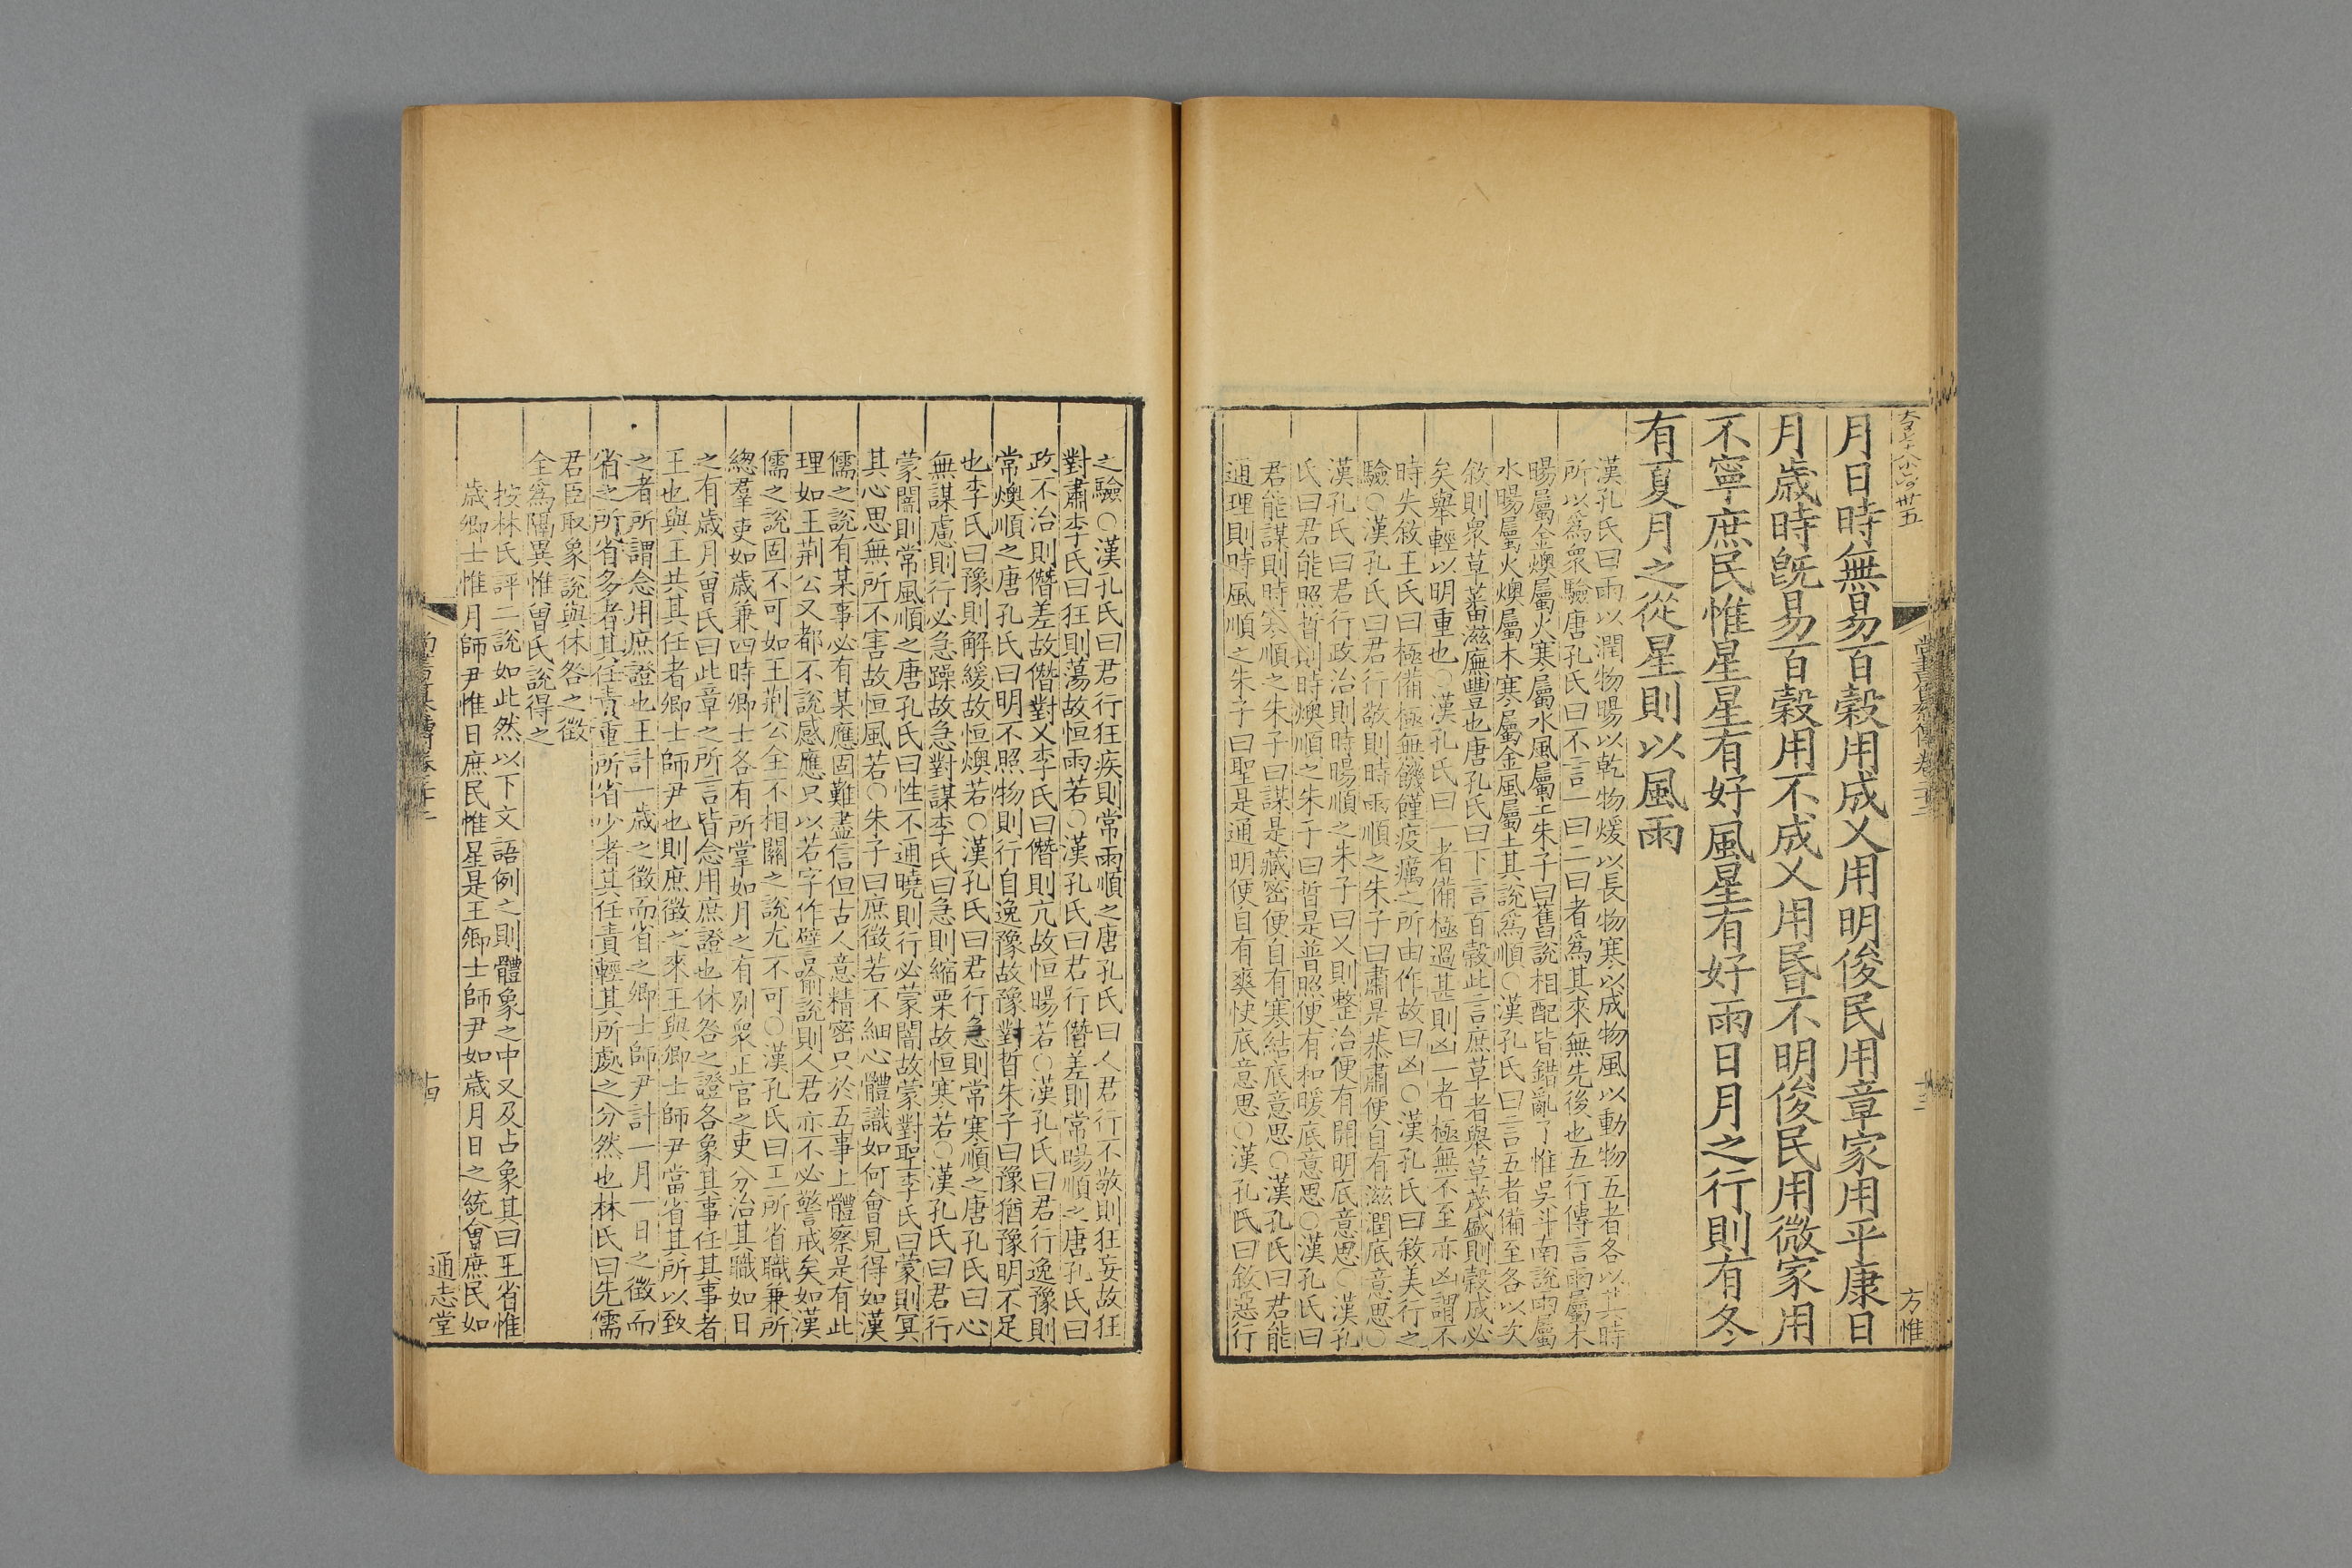 月日時無易百穀用成乂用明俊民用章家用平康日
月歲時旣易百穀用不成乂用昬不明俊民用微家用
不寧庶民惟星星有好風星有好雨日月之行則有冬
有夏月之從星則以風雨
漢孔氏曰雨以潤物暘以乾物煖以長物寒以成物風以動物五者各以其時
所以爲衆驗唐孔氏曰不言一曰二曰者爲其來無先後也五行傳言雨屬木
暘屬金燠屬火寒屬水風屬土朱子曰舊說相配皆錯亂了惟吳斗南說雨屬
水暘屬火燠屬木寒屬金風屬土其說爲順○漢孔氏曰言五者備至各以次
敘則衆草蕃滋廡豐也唐孔氏曰下言百穀此言庶草者舉草茂盛則穀成必
矣舉輕以明重也○漢孔氏曰一者備極過甚則凶一者極無不至亦凶謂不
時失敘王氏曰極備極無饑饉疫癘之所由作故曰凶○漢孔氏曰敘美行之
驗○漢孔氏曰君行敬則時雨順之朱子曰肅是恭肅便自有滋潤底意思○
漢孔氏曰君行政治則時暘順之朱子曰乂則整治便有開明底意思○漢孔
氏曰君能照晢則時燠順之朱子曰晢是普照便有和暖底意思○漢孔氏曰
君能謀則時寒順之朱子曰謀是藏密便自有寒結底意思○漢孔氏曰君能
通理則時風順之朱子曰聖是通明便自有爽快底意思○漢孔氏曰敘惡行
方惟
之驗○漢孔氏曰君行狂疾則常雨順之唐孔氏曰人君行不敬則狂妄故狂
對肅李氏曰狂則蕩故恒雨若○漢孔氏曰君行僭差則常暘順之唐孔氏曰
政不治則僭差故僭對乂李氏曰僭則亢故恒暘若○漢孔氏曰君行逸豫則
常燠順之唐孔氏曰明不照物則行自逸豫故豫對晢朱子曰豫猶豫明不足
也李氏曰豫則解緩故恒燠若○漢孔氏曰君行急則常寒順之唐孔氏曰心
無謀慮則行必急躁故急對謀李氏曰急則縮栗故恒寒若○漢孔氏曰君行
蒙闇則常風順之唐孔氏曰性不通曉則行必蒙闇故蒙對聖李氏曰蒙則冥
其心思無所不害故恒風若○朱子曰庶徵若不細心體識如何會見得如漢
儒之說有某事必有某應固難盡信但古人意精密只於五事上體察是有此
理如王荆公又都不說感應只以若字作譬喻說則人君亦不必警戒矣如漢
儒之說固不可如王荆公全不相關之說尤不可○漢孔氏曰王所省職兼所
總羣吏如歲兼四時卿士各有所掌如月之有别衆正官之吏分治其職如日
之有歲月曾氏曰此章之所言皆念用庶證也休咎之證各象其事任其事者
王也與王共其任者卿士師尹也則庶徵之來王與卿士師尹當省其所以致
之者所謂念用庶證也王計一歲之徵而省之卿士師尹計一月一日之徵而
省之所省多者其任責重所省少者其任責輕其所處之分然也林氏曰先儒
君臣取象說與休咎之徵
全爲隔異惟曾氏說得之
按林氏評二說如此然以下文語例之則體象之中又及占象其曰王省惟
歲卿士惟月師尹惟日庶民惟星是王卿士師尹如歲月日之統會庶民如
十四
通志堂